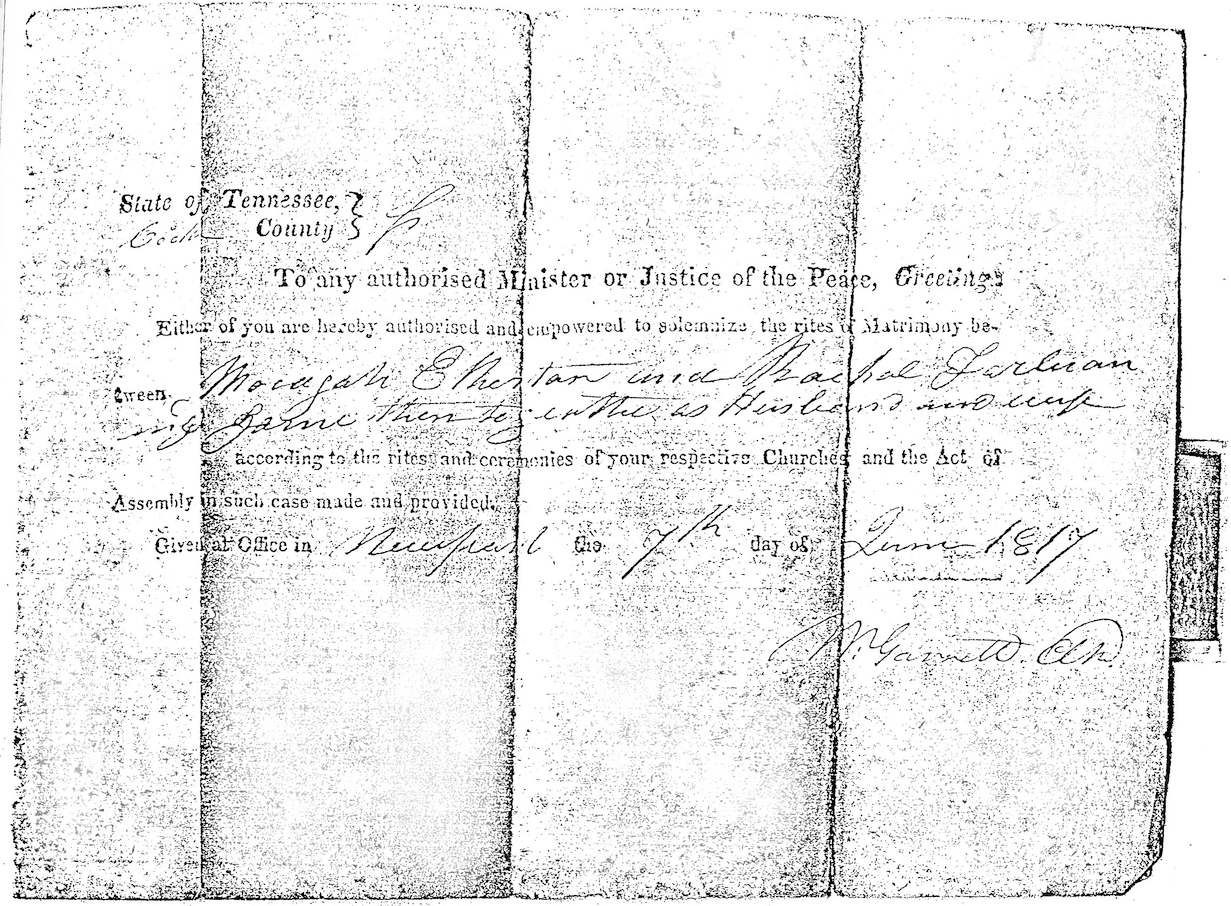 State of Tennessee, }
Cocke County }
To any authorised Minister or Justice of the Peace, Greeting:
Either of you are hereby authorised and empowered to solemnize the rites of Matrimony be-
tween Mocagah Etherton and Rachel
Joine them together as Husband and wife
according to the rites and ceremonies of your respective Churches and the Act of
Assembly in such case made and provided.
Given at Office in Newport the 7th day of June 1817
W. Garrett Clk